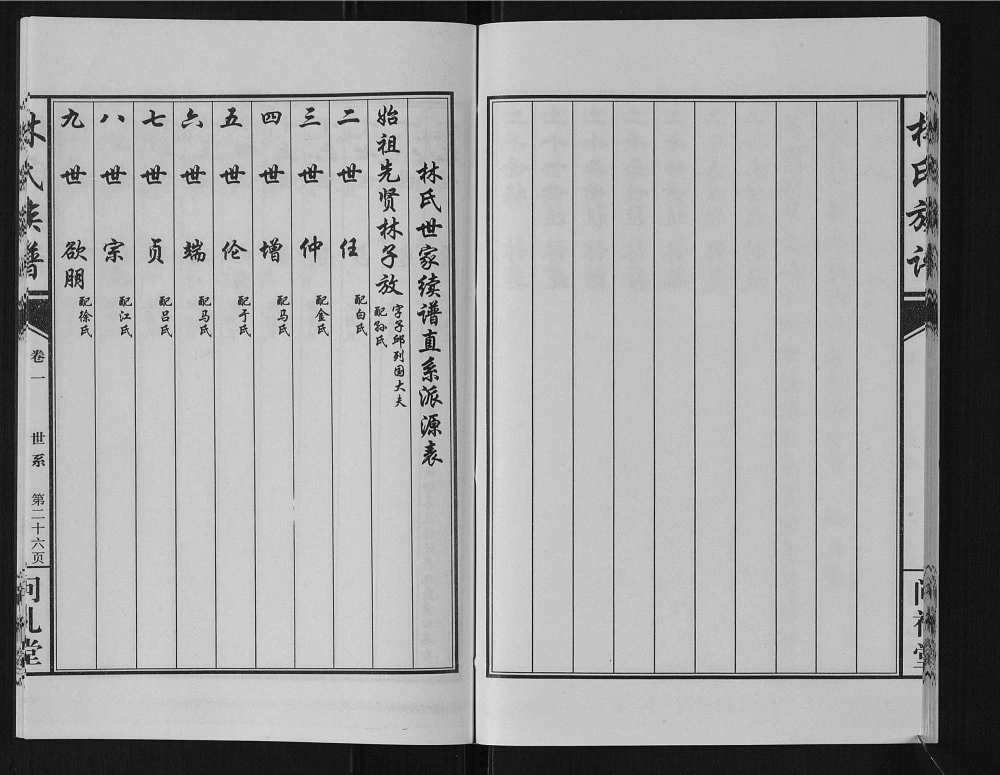 林氏族谱
问礼堂
林氏世家续谱直系派源表
始祖先贤林子放 字子邱列国大夫 配孙氏
二世 任 配白氏
三世 仲 配金氏
四世 增 配马氏
五世 伦 配于氏
六世 端 配马氏
七世 贞 配吕氏
八世 宗 配江氏
九世 欲朋 配徐氏
林氏族谱
卷一
世系
第二十六页
问礼堂